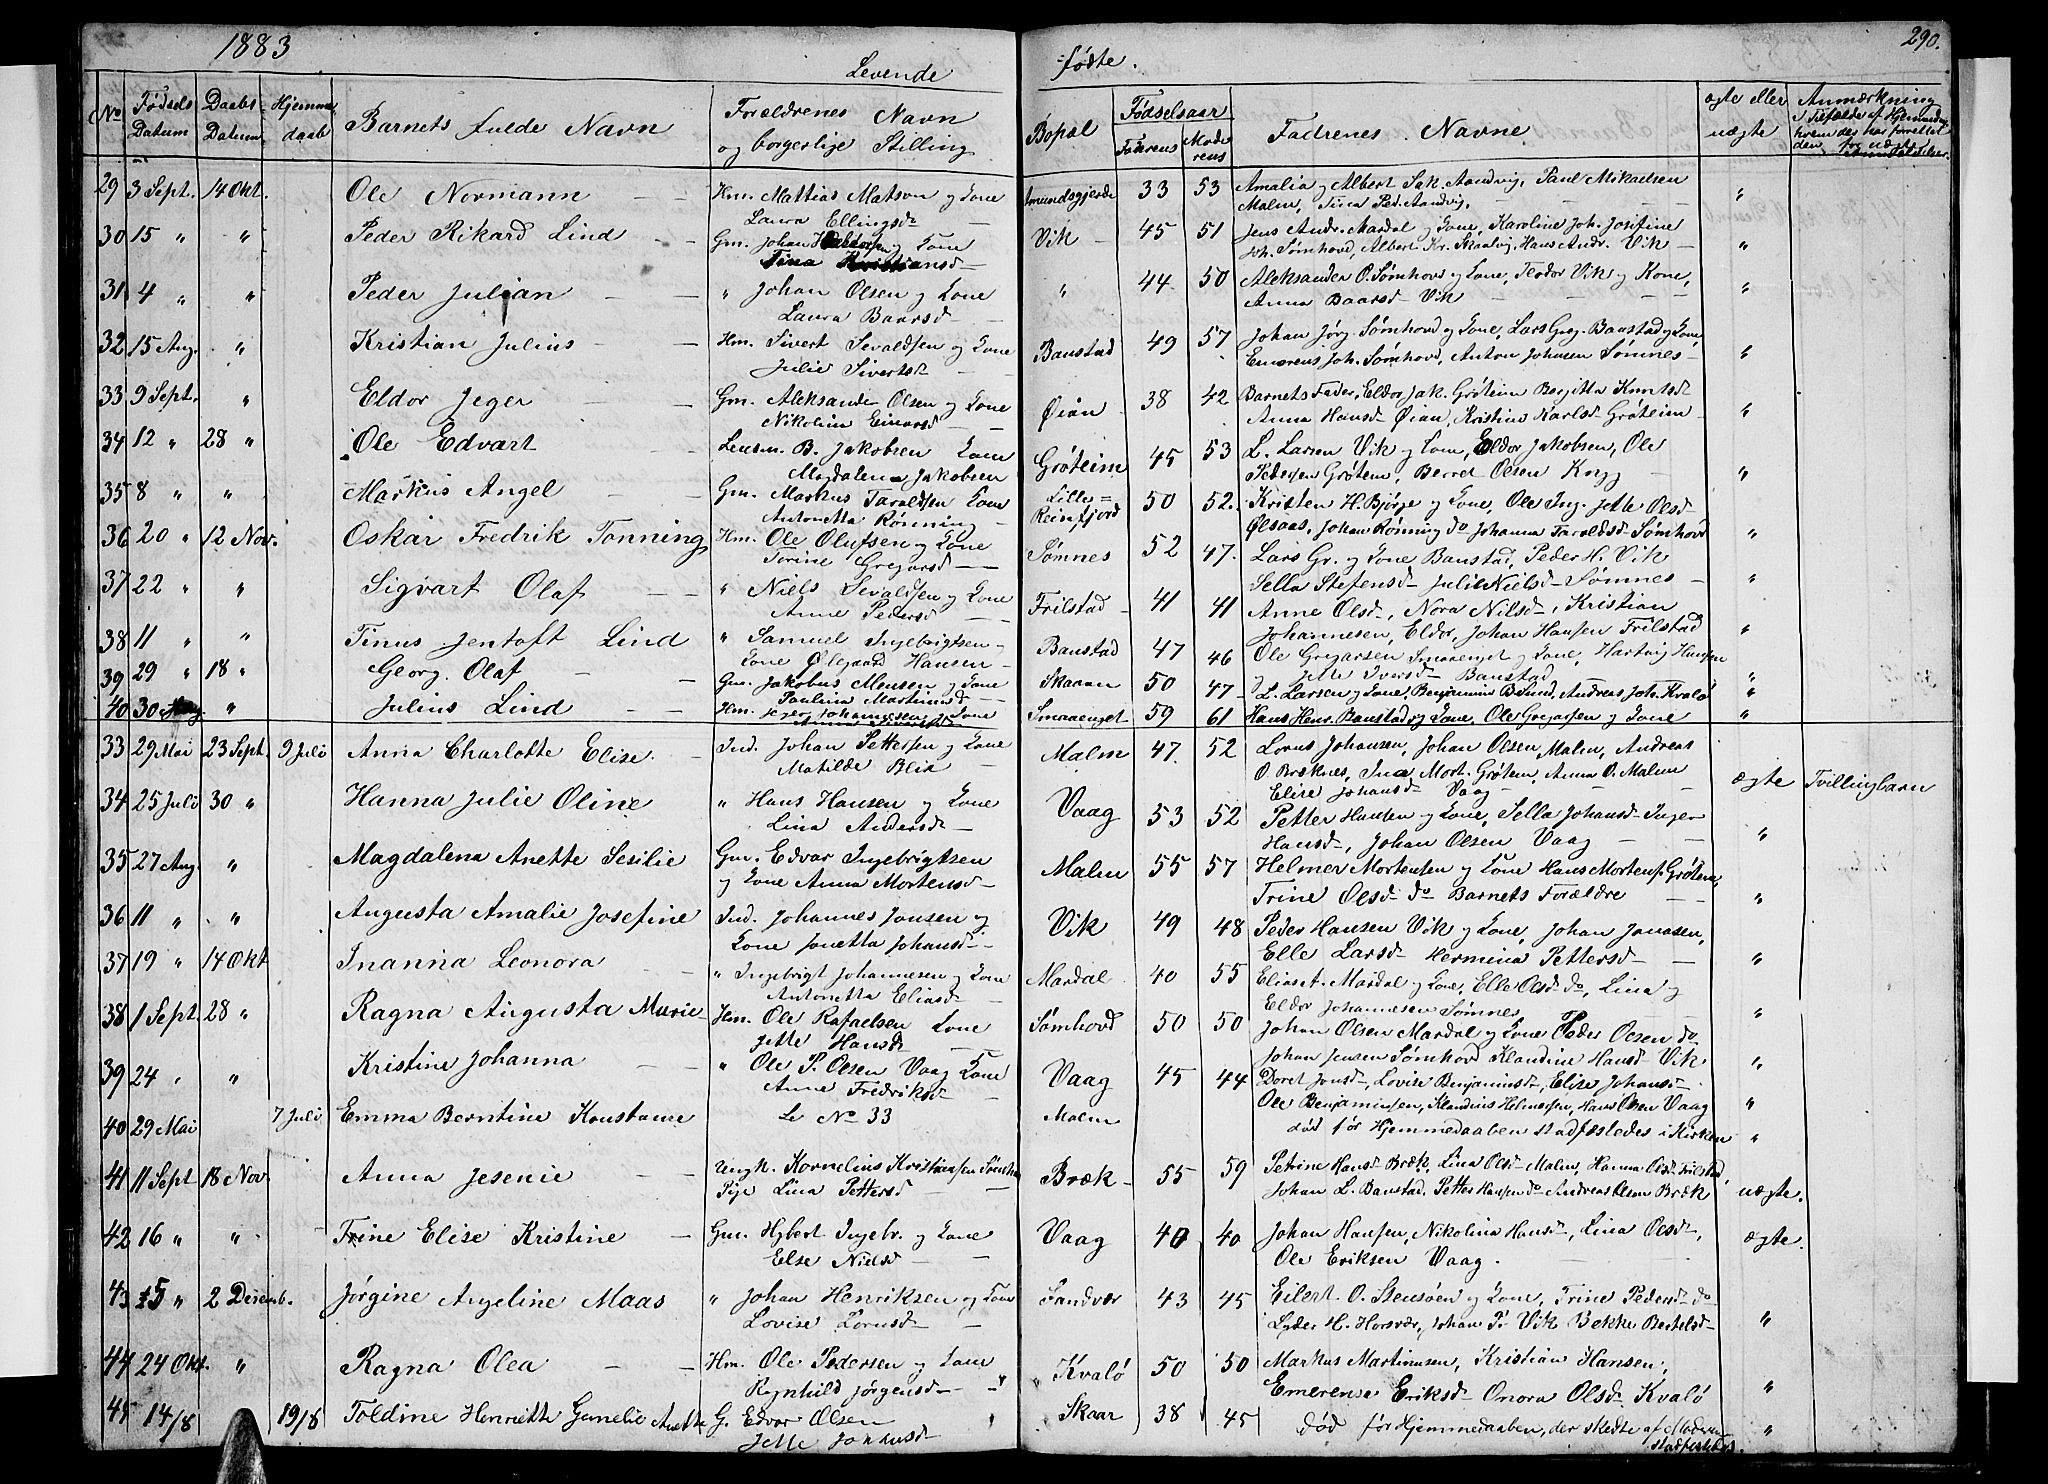 1883
Levende
fødte.
290.
No
Fødsels Datum
Daabs Datum
Hjemme daab
Barnets fulde Navn
Forældrenes Navn og borgerlige Stilling
Bopæl
Fødselsaar
Fadrens
Moderens
Fadrenes Navne
ægte eller uægte
Anmærkning
29 3 Sept. 14 Okt. Ole Normann Hm. Mattias Matson og Kone Laura Ellingsd 33 53 Amalia og Albert Sak. Aandvig, Paul Mikaelsen Malm, Tina Ped. Aandvig. "
30 15 " " Peder Rikard Lind Gm. Johan og Kone Tina Kristiansd Vik 45 51 Jens Andr. Mardal og Kone, Karoline Joh. Josefine Joh. Sømhovd, Albert Kr. Skaalvig, Hans Andr. Vik "
31 4 " " Peder Julian " Johan Olsen og Kone Laura Baarsd " 44 50 Aleksander O. Sømhovd og Kone, Teodor Vik og Kone, Anna Baarsd Vik "
32 15 Aug. " Kristian Julius Hm. Sivert Sevaldsen og Kone Julie Sivertsd Banstad 49 57 Johan Jørg. Sømhovd og Kone, Lars Greg. Banstad og Kone, Emerens Joh. Sømhovd, Anton Johansen Sømnes "
33 9 Sept. " Eldor Jeger Gm. Aleksander Olsen og Kone Nikoline Einarsd Øian 38 42 Barnets Fader, Eldor Jak. Grøteim Bergitta Knutsd Anna Hansd Øian, Kristine Karlsd Grøteim "
34 12 " 28 " Ole Edvart Lensm. B. Jakobsen Kone Magdalena Jakobsen Grøteim 45 53 L. Larsen Vik og Kone, Eldor Jakobsen, Ole Pedersen Grøtem, Berret Olsen "
35 8 " " Markus Angel Gm. Markus Taraldsen Kone Antonetta Rønning Lille= Reinfjord 50 52. Kristen H. Bjørge og Kone, Ole Ing. Jette Olsd Ølsaas, Johan Rønning do Johanna Taraldsd Sømhovd "
36 20 " 12 Nov. Oskar Fredrik Tonning Hm. Ole Olufsen og Kone Torine Gregarsd Sømnes 52 47. Lars Gr. og Kone Banstad, Peder H. Vik Sella Stefensd Julie Nielsd Sømnes "
37 22 " " Sigvart Olaf " Niels Sevaldsen og Kone Anne Pedersd Frilstad 41 41 Anne Olsd, Nora Nilsd, Kristian Johannesen, Eldor, Johan Hansen Frilstad "
38 11 " " Tinus Jentoft Lind " Samuel Ingebrigtsen og Kone Ølegaard Hansen Banstad 47 46 Ole Gregarsen Smaaenget og Kone, Hartvig Hansen og Jette Iversd Banstad "
39 29 " 18 " Georg Olaf Gm. Jakobus Monsen og Kone Paulina Martinusd Skaaren 50 47 L. Larsen og Kone, Benjamin B. Andreas Joh. Kvalø "
40 30 Aug " Julius Lind Hm. Johannesen og Kone Smaaenget 59 61 Hans Henr. Banstad og Kone, Ole Gregarsen og Kone "
33 29 Mai 23 Sept. 9 Juli Anna Charlotte Elise Ind. Johan Pettersen og Kone Matilde Blix Malm 47. 52 Lorns Johansen, Johan Olsen, Malm, Andreas O. Bræknes, Ina Mort. Grøtem, Anna O. Malm Elise Johansd Vaag ægte Tvillingbarn
34 25 Juli 30 " Hanna Julie Oline " Hans Hansen og Kone Lina Andersd Vaag 53 52 Petter Hansen og Kone, Sella Johansd Inger Hansd, Johan Olsen Vaag "
35 27 Aug. " Magdalena Anette Sesilie Gm. Edvar Ingebrigtsen og Kone Anna Mortensd Malm 55 57 Helmer Mortensen og Kone Hans Mortens. Grøtem, Trine Olsd do Barnets Forældre "
36 11 " " Augusta Amalie Josefine Ind. Johannes Jonsen og Kone Jonetta Johansd Vik 49 48 Peder Hansen Vik og Kone, Johan Jonassen, Elle Larsd Hermina Pettersd "
37 19 " 14 Okt Inanna Leonora " Ingebrigt Johannesen og Kone Antonetta Eliasd Mardal 40 55 Elias t. Mardal og Kone, Elle Olsd do, Lina og Eldor Johannesen Sømnes "
38 1 Sept. 28 " Ragna Augusta Marie Hm. Ole Rafaelsen Kone Jette Hansd Sømhovd 50 50 Johan Olsen Mardal og Kone Peder Olsen do Johan Jensen Sømhovd Klandine Hansd Vik "
39 24 " " Kristine Johanna " Ole P. Olsen Vaag Kone Anne Fredriksd Vaag 45 44 Doret Jonsd, Lovise Benjaminsd, Elise Johansd Ole Benjaminsen, Klandius Helmersen, Hans Olsen Vaag "
40 29 Mai 7 Juli Emma Berntine Konstanse Se No 33 Malm død før Hjemmedaaben stadfæstedes i Kirken "
41 11 Sept 18 Nov. Anna Jesenie Ungk. Kornelius Kristiansen Pige Lina Pettersd Bræk 55 59 Petrine Hansd Bræk, Lina Olsd Malm, Hanna Olsd Frilstad, Johan L. Banstad, Petter Hansen do Andreas Olsen Bræk uægte.
42 16 " " Trine Elise Kristine Gm. Hybert Ingebr. og Kone Else Nielsd Vaag 40 40 Johan Hansen, Nikolina Hansd, Lina Olsd, Ole Eriksen Vaag. ægte.
43 25 " 2 Desemb. Jørgine Angeline Maas " Johan Henriksen og Kone Lovise Lornsd Sandvær 43 45 Eilert O. Stensøen og Kone, Trine Pedersd do Lyder H. Horsvær, Johan P. Vik Bekke Bertelsd "
44 24 Okt. " Ragna Olea Hm. Ole Pedersen og Kone Ragnhild Jørgensd Kvalø 50 50 Markus Martinusen, Kristian Hansen, Emerense Eriksd Onora Olsd Kvalø "
45 14/8 19/8 Toldine Henriette Gunelie Anette G. Edvar Olsen Jette Johansd Skaar 38 45 død før Hjemmedaaben, der skedte af Moderen stadfæstedes. "